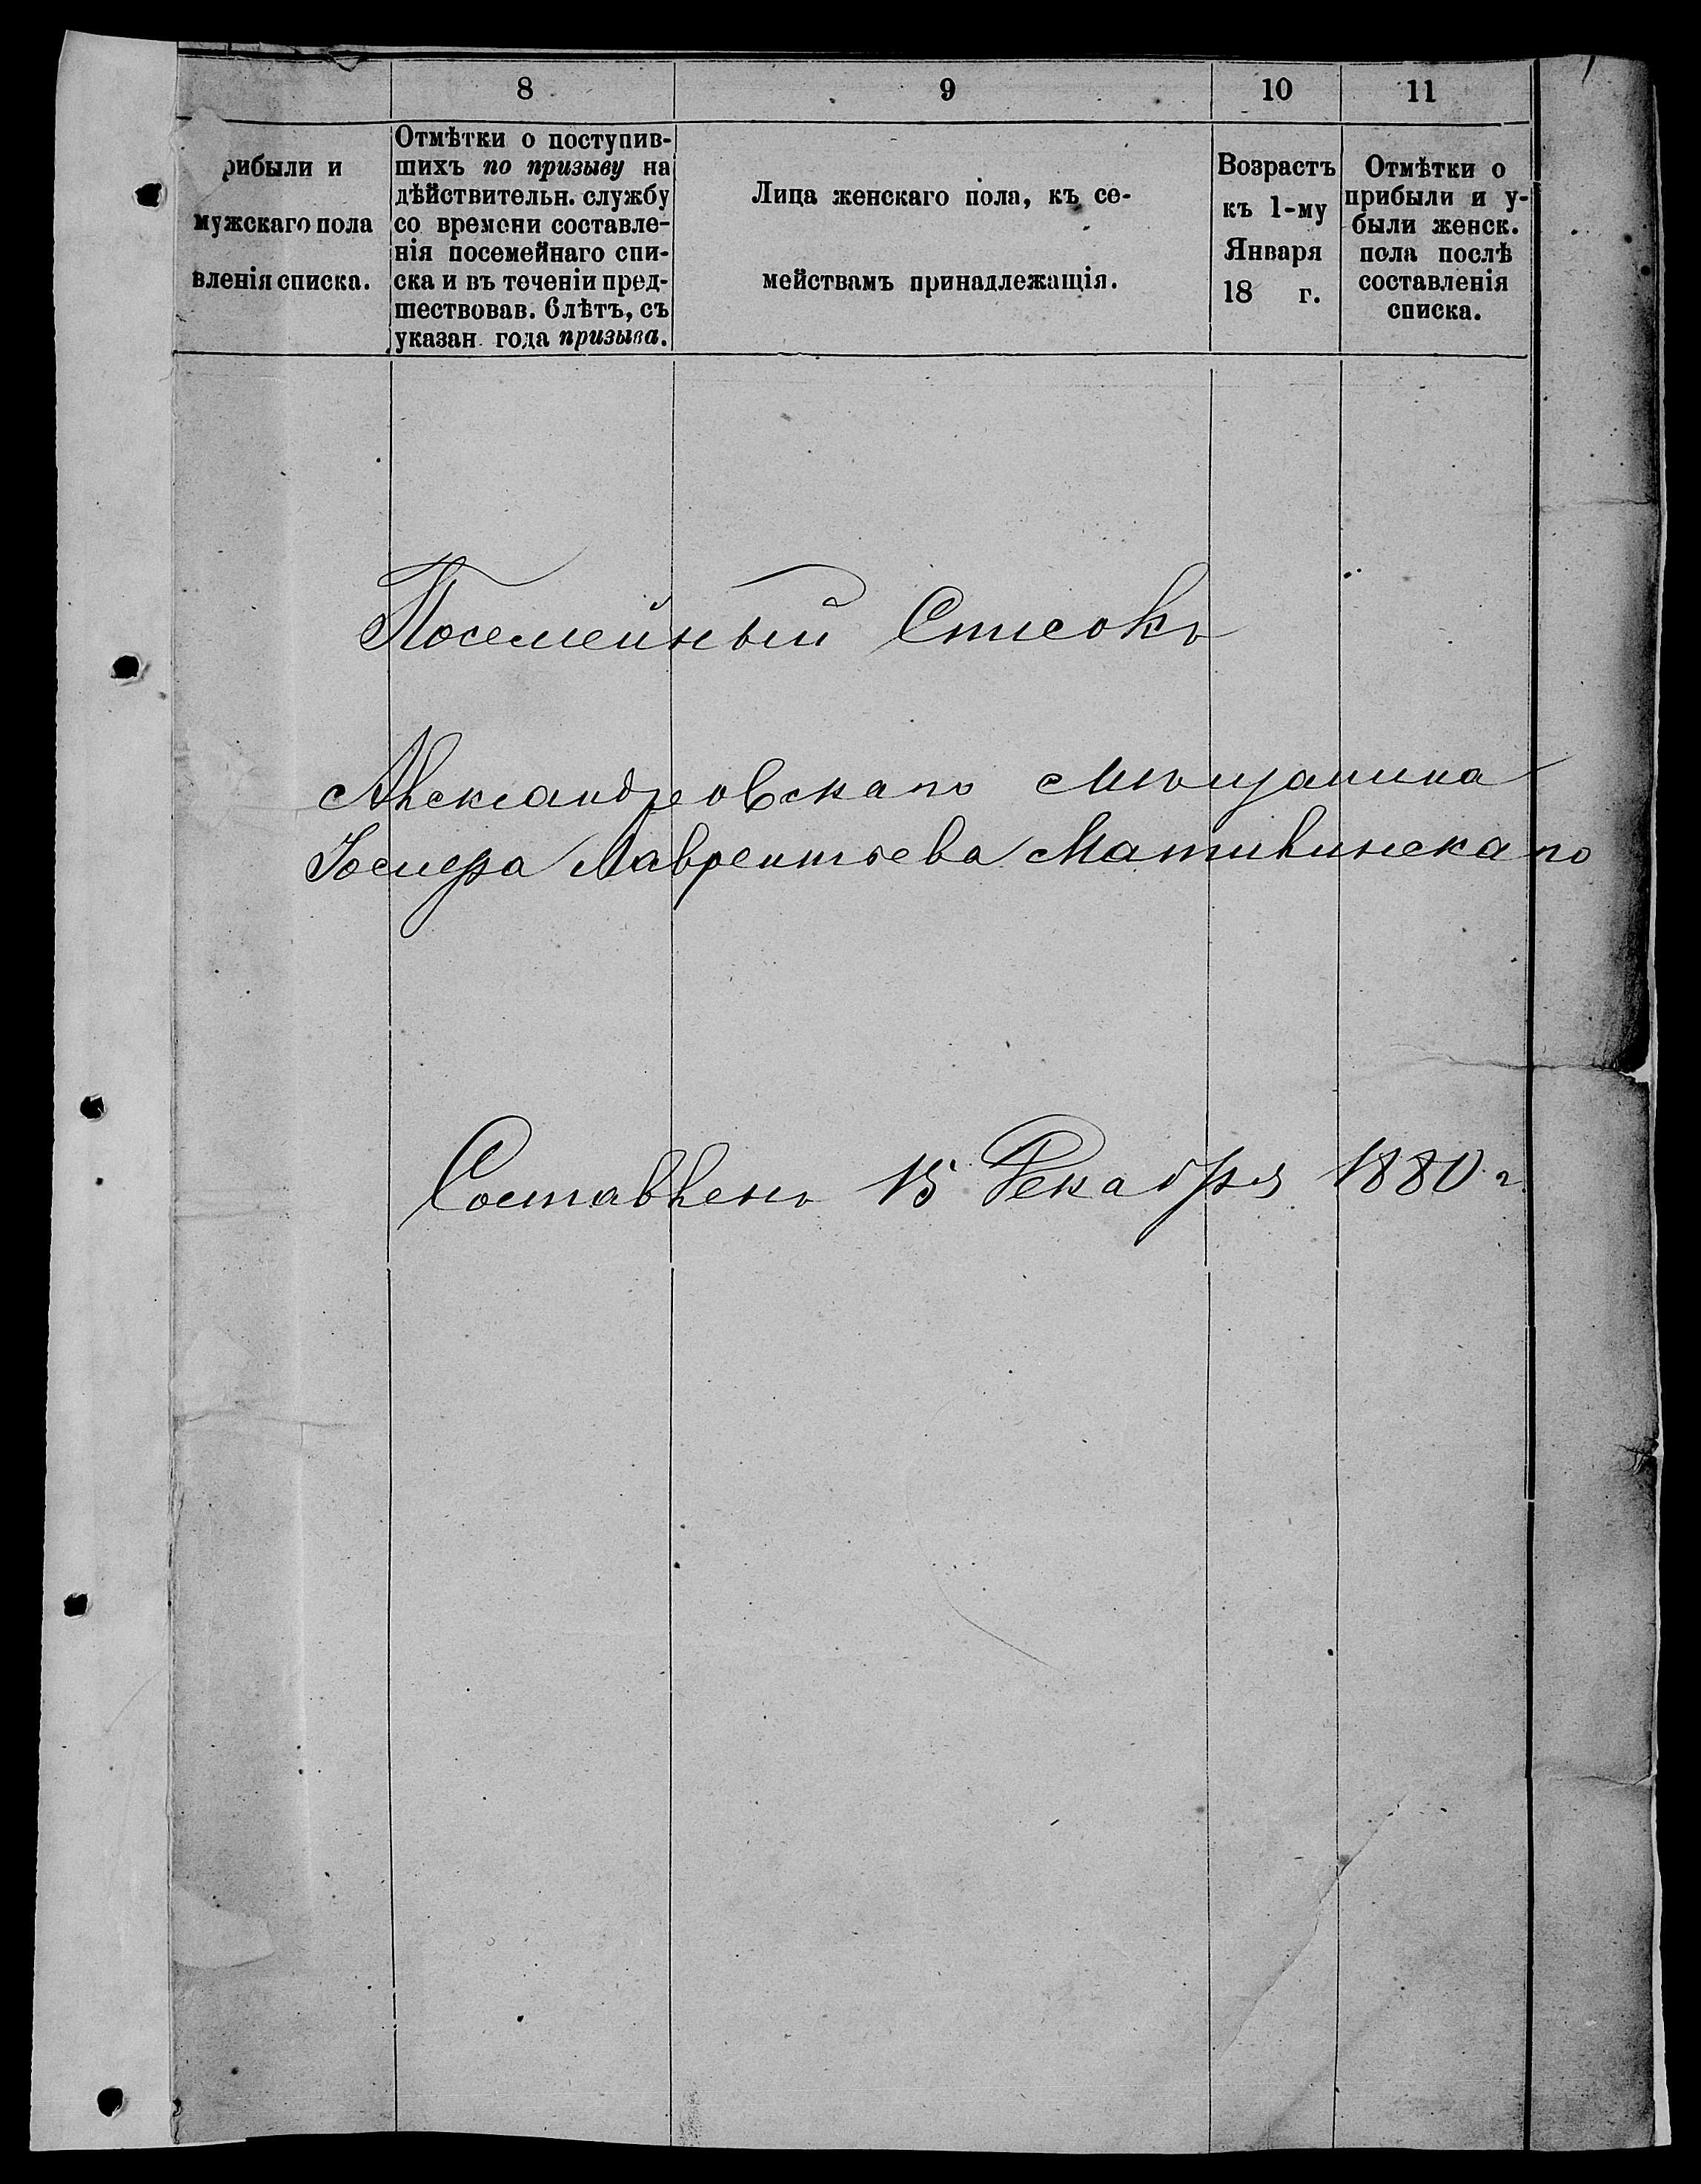 8 9 10 11
рибыли и
мужскаго пола
вленія списка.
Отмѣтки о поступив-
шихъ по призыву на
дѣйствительн. службу
со времени составле-
нія посемейнаго спи-
ска и въ теченіи пред-
шествовав. 6 лѣтъ, съ
указан. года призыва.
Лица женскаго пола, къ се-
мействамъ принадлежащія.
Возрастъ
къ 1-му
Января
18 г.
Отмѣтки о
прибыли и у-
были женск.
пола послѣ
составленія
списка.
Посемейный Списокъ
Александровскаго Мѣщанина
Іосифа Лаврентьева Матилинскаго
Составленъ 15 Декабря 1880 г.